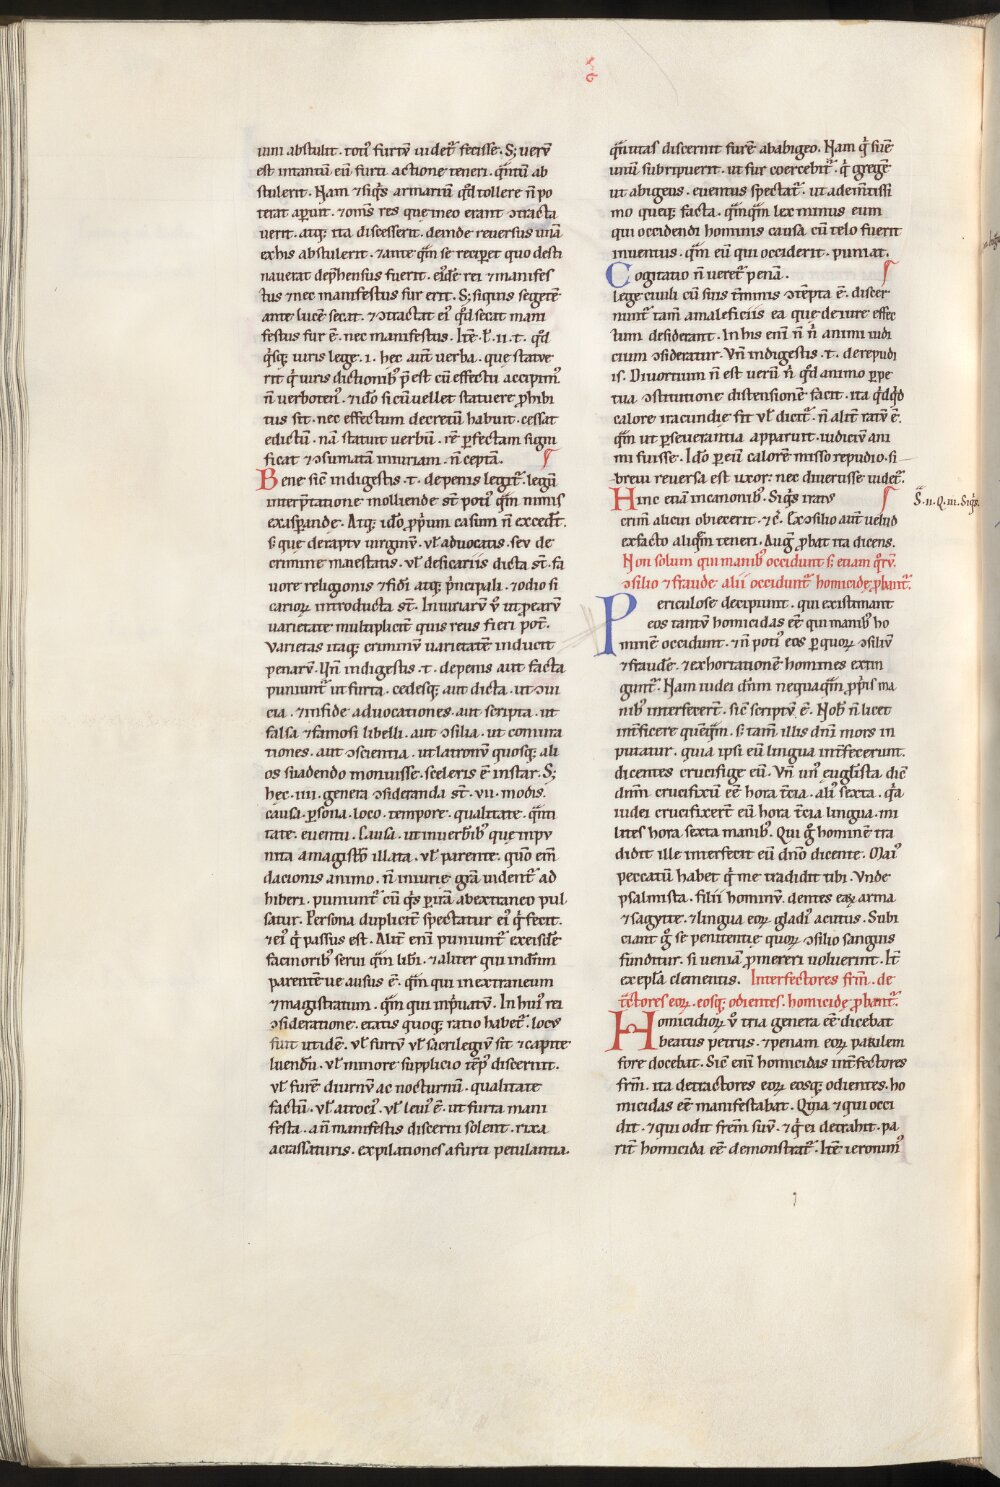 uini abstulit. toti᷒ furtū uidet᷑ fecisse. S; uerū
est intantū eū furti actione teneri. q̄ntū ab
stulerit. Nam ⁊ siq̇s armariū q̇d tollere n̄ po
terat aperuit. ⁊ om̄s res que in eo erant ɔtracta
uerit. atq; ita discesserit. deinde reuersus unā
ex his abstulerit. ⁊ ante q̄m se reciperet quo desti
nauerat dep̄hensus fuerit. ei᷒dē rei ⁊ manifes
tus ⁊ nec manifestus fur erit. S; siquis segetē
ante lucē secat. ⁊ ɔtractat ei᷒ qd̄ secat mani
festus fur ē. nec manifestus. Itē l. ii. t. qd̄
q̇sq; iuris lege. i. hec aut̄ uerba. que statue
rit q̇ iuris dictionib᷒ p̄est cū effectu accipim᷒
n̄ uerboten᷒. ⁊ ido si cū uellet statuere ꝓhibi
tus sit. nec effectum decretū habuit. cessat
edictū. nā statuit uerbū. rē ꝑfectam signi
ficat ⁊ ɔsumatā iniuriam. n̄ ceptā.
Bene sic̄ indigestis. t. de penis legit᷑. legū
interp̄tatione molliende st̄ poti᷒ q̄m nimis
exasperande. Atq; ido ꝓprium casum n̄ excedt̄.
s̄ que de raptu uirginū. ul̄ aduocatis. seu de
crimine maiestatis. ul̄ de ficariis dicta st̄. fa
uore religionis ⁊ fidi atq; p̄ncipali. ⁊ odio si
carioꝝ introducta st̄. Iniuriarū u̇ ut pearū
uarietate multiplicit̄ quis reus fieri pot̄.
Varietas itaq; criminū uarietatē inducit
penarū. Un̄ indigestis. t. de penis aut facta
puniunt᷑ ut furta. cedesq; aut dicta. ut ɔui
cia. ⁊ infide aduocationes. aut scripta. ut
falsa ⁊ famosi libelli. aut ɔsilia. ut coniura
tiones. aut ɔscientia. ut latronū quosq; ali
os suadendo monuisse. sceleris ē instar. S;
hec. iiii. genera ɔsideranda st̄. vii. modis.
causa. ꝑsona. loco. tempore. qualitate. q̄nti
tate. euentu. Causa. ut in uerb̄ib᷒ que inpu
nita a magistro illata. ul̄ parente. quō em̄
dacionis animo. n̄ iniurie grā uident᷑ ad
hiberi. puniunt᷑ cū q̇s ꝑ irā ab extraneo pul
satur. Persona duplicit̄ spectatur ei᷒ q̇ fecit.
⁊ ei᷒ q̇ passus est. Alit̄ eni puniunt᷑ ex eisdē
facinorib᷒ serui q̄m lib̄i. ⁊ aliter qui in dn̄m
parentē ue ausus ē. q̄m qui in extraneum
⁊ magistratum. q̄m qui in p̄uatū. In hui᷒ rei
ɔsideratione. etatis quoq; ratio habet᷑. locus
facit ut idē. ul̄ furtū ul̄ sacrilegiū sit ⁊ capite
luendū. ul̄ minore supplicio tēp᷒ discernit.
ul̄ furē diurnū ac nocturnū. qualitate
factū. ul̄ atroci᷒. ul̄ leui᷒ ē. ut furta mani
festa. a n̄ manifestis discerni solent. rixa
acrassaturis. expilationes a furti petulantia.
q̄ntitas discernit furē ab abigeo. Nam q̇ suē
unū subripuerit. ut fur coercebit᷑. q̇ gregē
ut abigeus. euentus spectat᷑. ut a clem̄tissi
mo queq; facta. q̄mq̄m lex minus eum
qui occidendi hominis causa cū telo fuerit
inuentus. q̄m eū qui occiderit. puniat.
Cogitatio n̄ meret᷑ penā.
lege ciuili cū suis t̄minis ɔtēpta ē. discer
nunt᷑ tam̄ a maleficiis ea que de iure effec
tum desiderant. In his eni n̄ n̄ animi iudi
cium ɔsideratur. Vn̄ indigestis. t. de repudi
is. Diuortium n̄ est uerū n̄ qd̄ animo ꝑpe
tua ɔstitutione distensionē facit. ita q̇dq̇d
calore iracundie fit ul̄ dicit᷑. n̄ alit̄ ratū ē.
q̄m ut ꝑseuerantia apparuit. iudiciū ani
mi fuisse. Ido per eū calorē misso repudio. si
breui reuersa est uxor. nec diuertisse uidet᷑.
Hinc etiā in canonib᷒. Siq̇s iratus
S̄. ii. Q. iii. Siq̇s.
crim̄ alicui obiecerit. ⁊c̄. Ex ɔsilio aut̄ uelud
ex facto aliq̄m teneri. Aug᷒ ꝓbat ita dicens.
Non solum qui manib᷒ occidunt s̄ etiam q̇rū
ɔsilio ⁊ fraude alii occidunt᷑ homicidę ꝓbant᷑.
Periculose decipiunt. qui existimant
eos tantū homicidas eē qui manib᷒ ho
minē occidunt. ⁊ n̄ poti᷒ eos ꝑ quoꝝ ɔsiliū
⁊ fraudē. ⁊ exhortationē homines extin
gunt᷑. Nam iudei dn̄m nequaq̄m ꝓpriis ma
nib᷒ interfecert̄. sic̄ scriptū ē. Nob̄ n̄ licet
int̄ficere quēq̄m. s̄ tam̄ illis dn̄i mors in
putatur. quia ipsi eū lingua int̄fecerunt.
dicentes crucifige eū. Vn̄ un᷒ euglista dic̄
dnm̄ crucifixū eē hora tercia. ali᷒ sexta. q̇a
iudei crucifixert̄ eū hora tercia lingua. mi
lites hora sexta manib᷒. Qui g̊ hominē tra
didit ille interfecit eū dn̄o dicente. Mai᷒
peccatū habet q̇ me tradidit tibi. Vnde
psalmista. filii hominū. dentes eoꝝ arma
⁊ sagytte. ⁊ lingua eoꝝ gladi᷒ acutus. Subi
ciant g̊ se penitentie quoꝝ ɔsilio sanguis
funditur. si ueniā ꝓmereri uoluerint. It̄
ex epla clementis. Interfectores frm̄. de
t̄ctores eoꝝ. eosq; odientes. homicidę ꝓbant᷑.
Homicidioꝝ u̇ tria genera eē dicebat
beatus petrus. ⁊ penam eoꝝ parilem
fore docebat. Sic̄ eni homicidas int̄fectores
frm̄. ita detractores eoꝝ eosq; odientes. ho
micidas eē manifestabat. Quia ⁊ qui occi
dit. ⁊ qui odit frēm suū. ⁊ q̇ ei detrahit. pa
rit̄ homicida eē demonstrat᷑. Itē ieronim᷒